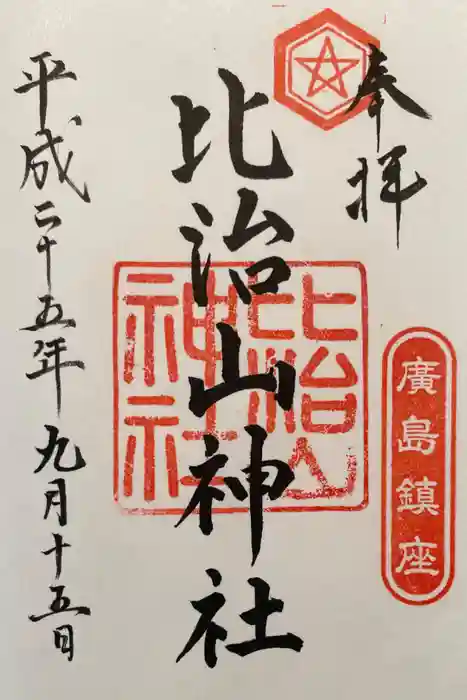 奉拝
廣島鎮座
比治山神社
比治山神社
平成二十五年九月十五日